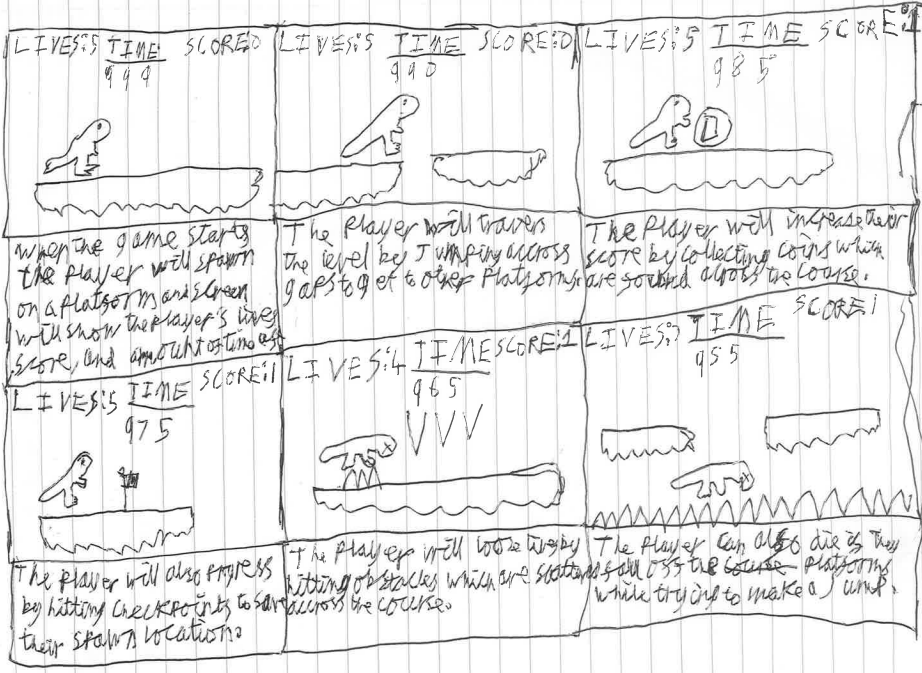 LIVES:5 TIME SCORE:0
999
When the game starts
the player will spawn
on a platform and screen
will show the player's lives
score, and amount of time
LIVES:5 TIME SCORE:0
990
The Player will travers
the level by Jumping across
gaps to get to other Platforms.
LIVES:5 TIME SCORE:1
985
The Player will increase their
score by collecting coins which
are found across the course.
LIVES:5 TIME SCORE:1
975
The player will also Progress
by hitting checkpoints to save
their spawn location.
LIVES:4 TIME SCORE:1
965
The Player will loose lives by
hitting obstacles which are scattered
across the course.
LIVES:3 TIME SCORE:1
955
The Player can also die if they
fall off the course Platforms
while trying to make a Jump.